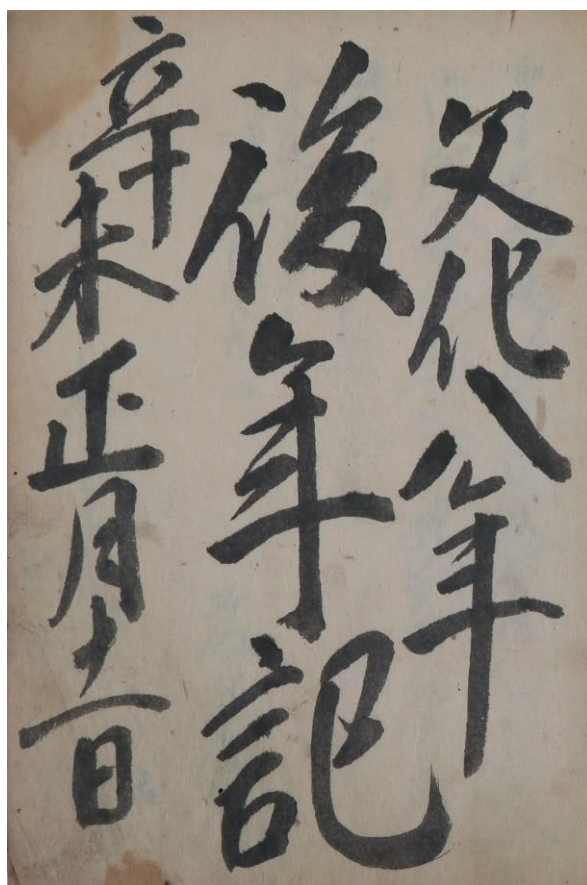 文化八年
後年記
辛未正月十一日